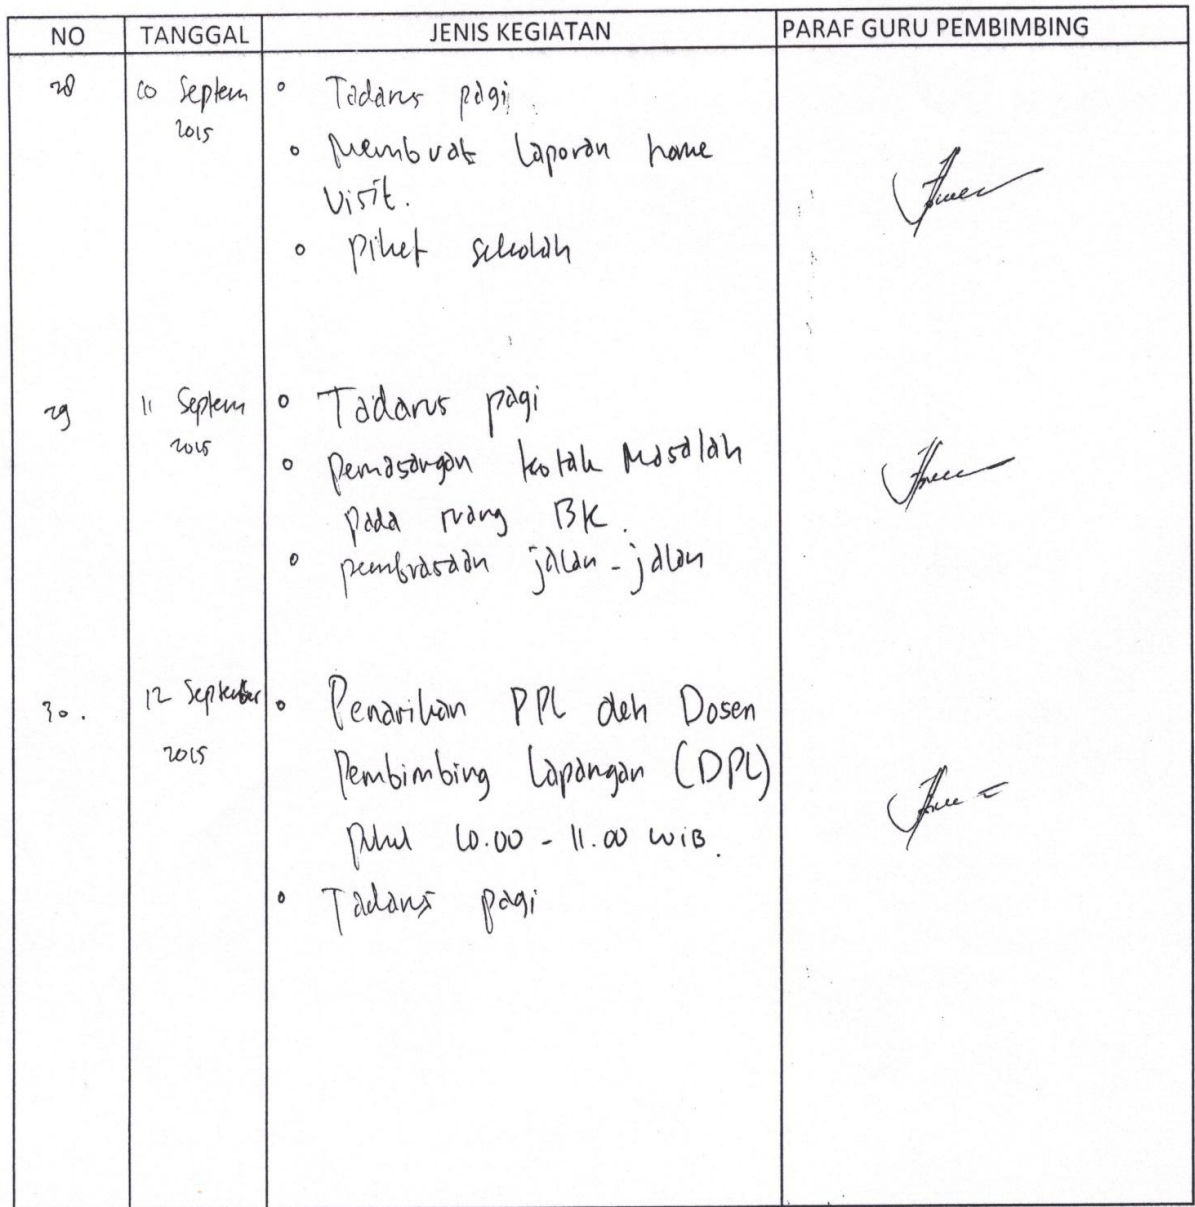 NO TANGGAL JENIS KEGIATAN PARAF GURU PEMBIMBING
28 10 Septem ° Tadarus pagi.
2015 ° Membuat laporan home
visit.
° piket sekolah
29 11 Septem ° Tadarus pagi
2015 ° pemasangan kotak Masalah
pada ruang BK.
° pembiasaan jalan-jalan
30. 12 September ° Penarikan PPL oleh Dosen
2015 Pembimbing Lapangan (DPL)
pukul 10.00 - 11.00 WIB.
° Tadarus pagi